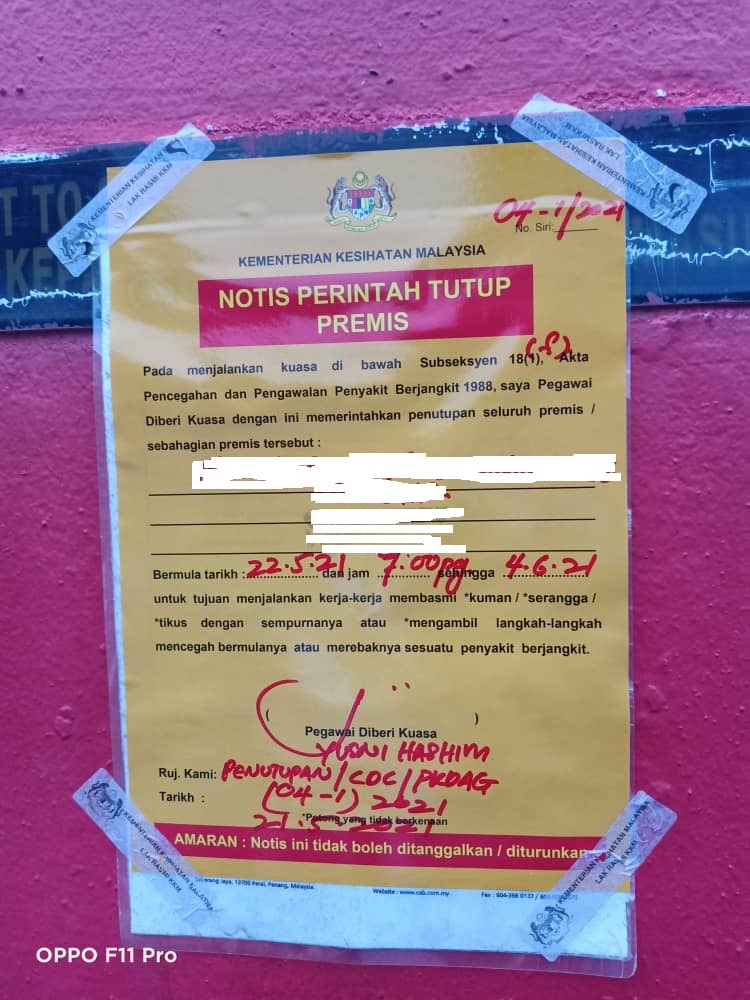 T TO
KEP
KEMENTERIAN KESIHATAN MALAYSIA
LAK RASMI KKM
KEMENTERIAN KESIHATAN MALAYSIA
LAK RASMI KKM
04-1/2021
No. Siri:
KEMENTERIAN KESIHATAN MALAYSIA
NOTIS PERINTAH TUTUP
PREMIS
Pada menjalankan kuasa di bawah Subseksyen 18(1),(f) Akta
Pencegahan dan Pengawalan Penyakit Berjangkit 1988, saya Pegawai
Diberi Kuasa dengan ini memerintahkan penutupan seluruh premis /
sebahagian premis tersebut :
Bermula tarikh : 22.5.21 dan jam 7:00pg sehingga 4.6.21
untuk tujuan menjalankan kerja-kerja membasmi *kuman / *serangga /
*tikus dengan sempurnanya atau *mengambil langkah-langkah
mencegah bermulanya atau merebaknya sesuatu penyakit berjangkit.
( )
Pegawai Diberi Kuasa
YUSNI HASHIM
Ruj. Kami: PENUTUPAN/CDC/PKDAG
(04-1) 2021
Tarikh : 21.5.2021
*Potong yang tidak berkenaan
AMARAN : Notis ini tidak boleh ditanggalkan / diturunkan
KEMENTERIAN KESIHATAN MALAYSIA
LAK RASMI KKM
KEMENTERIAN KESIHATAN MALAYSIA
LAK RASMI KKM
Jaya, 13700 Perai, Penang, Malaysia.
Website : www.cab.com.my
Fax : 604-398 0127 /
OPPO F11 Pro